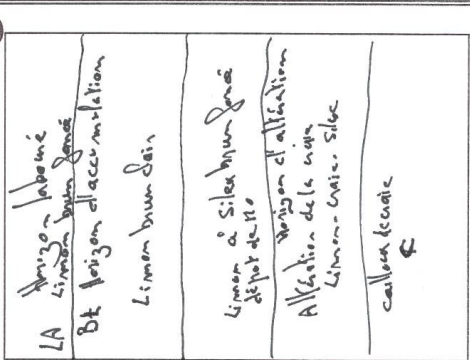 LA Horizon labouré
Limon brun foncé
Bt horizon d'accumulation
Limon brun clair
Limon à Silex brun foncé
dépot de
Horizon d'altération
Altération de la craie
Limon - craie - Silex
cailloux de craie
C